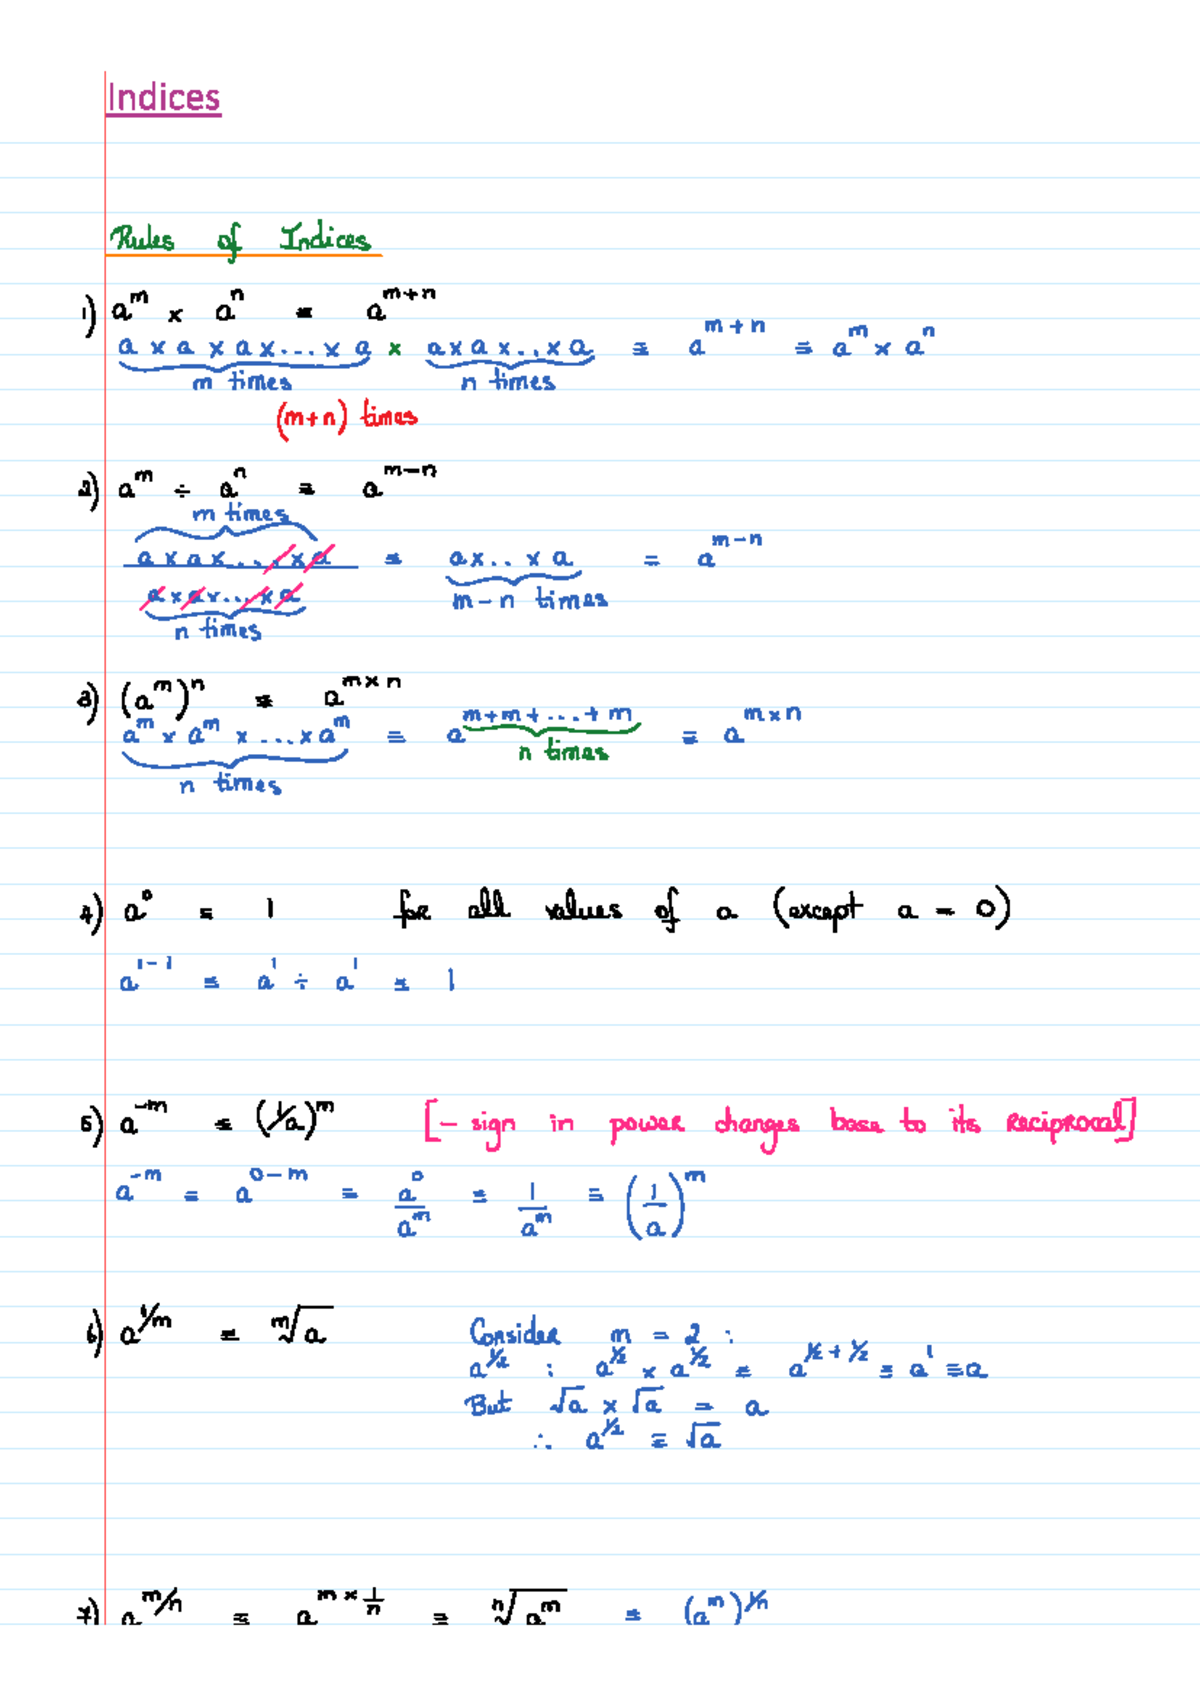 Indices
Rules of Indices
1) a^m × a^n ≡ a^(m+n)
a × a × a × ... × a × a × a × .. × a ≡ a^(m+n) ≡ a^m × a^n
m times n times
(m+n) times
2) a^m ÷ a^n ≡ a^(m−n)
m times
a × a × ... × a ≡ a × .. × a = a^(m−n)
a × a × ... × a m − n times
n times
3) (a^m)^n ≡ a^(m×n)
a^m × a^m × ... × a^m ≡ a^(m+m+...+m) ≡ a^(m×n)
n times
n times
4) a^0 ≡ 1 for all values of a (except a = 0)
a^(1−1) ≡ a^1 ÷ a^1 ≡ 1
5) a^(−m) ≡ (1/a)^m [− sign in power changes base to its reciprocal]
a^(−m) ≡ a^(0−m) ≡ a^0/a^m ≡ 1/a^m ≡ (1/a)^m
6) a^(1/m) ≡ m√a Consider m = 2 :
a^(1/2) : a^(1/2) × a^(1/2) ≡ a^(1/2 + 1/2) ≡ a^1 ≡ a
But √a × √a = a
∴ a^(1/2) ≡ √a
7) a^(m/n) ≡ a^(m × 1/n) ≡ n√(a^m) ≡ (a^m)^(1/n)